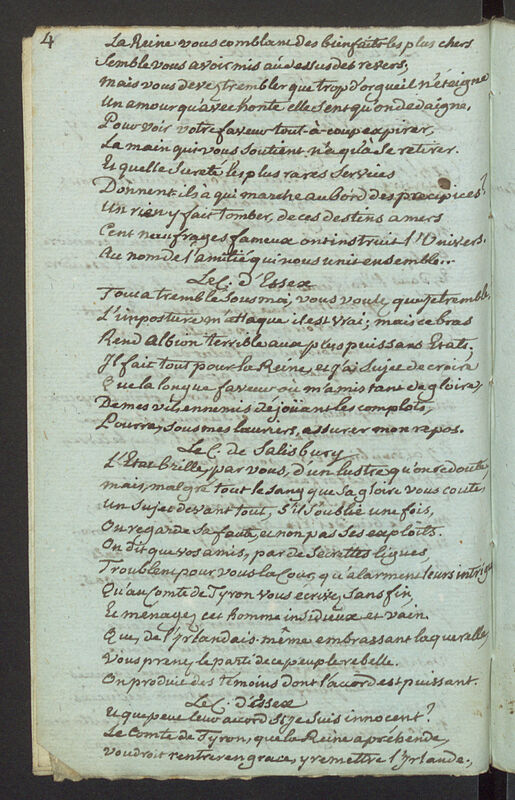 4
La Reine vous comblant des bienfaits les plus chers
Semble vous avoir mis au dessus des revers;
mais vous devez trembler que trop d'orgueil n'éteigne
Un amour qu'avec honte elle sent qu'on dedaigne,
Pour voir votre faveur tout-à-coup expirer,
La main qui vous soutient n'a qu'à se retirer.
Et quelle sureté les plus rares services
Donnent ils à qui marche au bord des precipices?
Un rien y fait tomber, de ces destins amers
Cent naufrages fameux ont instruit l'Univers.
Au nom de l'amitié qui vous unit ensemble...
Le C. d'Essex
Tout a tremblé sous moi, vous voulez que je tremble,
L'imposture m'attaque il est vrai; mais ce bras
Rend Albion terrible aux plus puissans Etats;
Il fait tout pour la Reine, et j'ai sujet de croire
Que la longue faveur où m'a mis tant de gloire,
De mes vils ennemis déjoüant les complots,
Pourra, sous mes lauriers, assurer mon repos.
Le C. de Salisbury
L'Etat brille, par vous, d'un lustre qu'on redoute,
mais, malgré tout le sang que sa gloire vous coute,
un sujet devant tout, s'il s'oublie une fois,
On regarde sa faute, et non pas ses exploits.
On dit que vos amis, par de secrettes ligues
Troublent pour vous la Cour, qu'alarment leurs intrigues
Qu'au Comte de Tyron vous ecrivez sans fin,
Et menagez cet homme insidieux et vain.
Que, de l'Yrlandais même embrassant la querelle,
Vous prenez le parti de ce peuple rebelle.
On produit des témoins dont l'accord est puissant.
Le C. d'Essex
Et que peut leur accord si je suis innocent?
Le Comte de Tyron, que la Reine apréhende,
voudroit rentrer en grace, y remettre l'Yrlande,